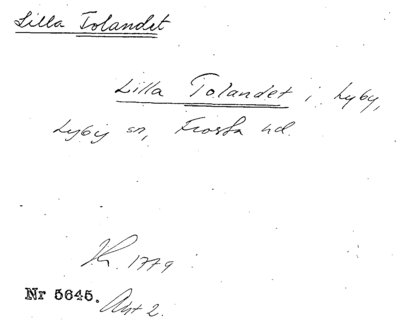 Lilla Tolandet
Lilla Tolandet i Lyby,
Lyby sn, Frosta hd.
1779
Nr 5645.
Akt 2.